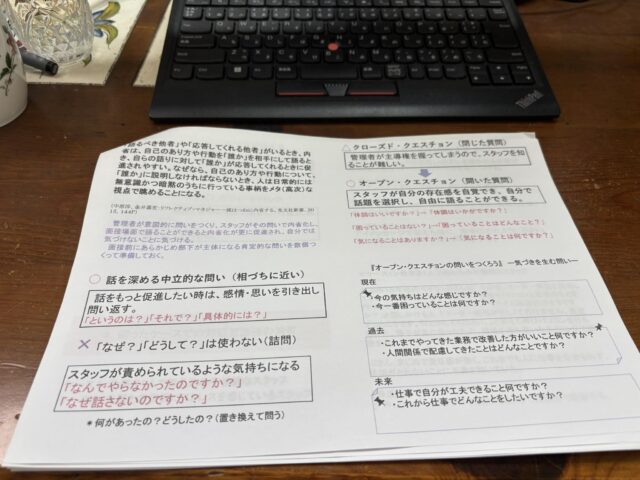 語るべき他者」や「応答してくれる他者」がいるとき、内
省は、自己のあり方や行動を「誰か」を相手にして語ると
き、自らの語りに対して「誰か」が応答してくれるときに促
進されやすい。なぜなら、自己のあり方や行動について、
「誰か」に説明しなければならないとき、人は日常的には
無意識かつ暗黙のうちに行っている事柄をメタ(高次)な
視点で眺めることになる。
管理者が意図的に問いをつくり、スタッフがその問いで内省化し、
面接場面で語ることができると内省化が更に促進され、自分では
気づけないことに気づける。
面接前にあらかじめ部下が主体になる肯定的な問いを数個つ
くって準備しておく。
○ 話を深める中立的な問い(相づちに近い)
話をもっと促進したい時は、感情・思いを引き出し
問い返す。
「というのは?」「それで?」「具体的には?」
× 「なぜ?」「どうして?」は使わない(詰問)
スタッフが責められているような気持ちになる
「なんでやらなかったのですか?」
「なぜ話さないのですか?」
*何があったの?どうしたの?(置き換えて問う)
△ クローズド・クエスチョン(閉じた質問)
管理者が主導権を握ってしまうので、スタッフを知
ることが難しい。
○ オープン・クエスチョン(開いた質問)
スタッフが自分の存在感を自覚でき、自分で
話題を選択し、自由に語ることができる。
「体調はいいですか?」→「体調はいかがですか?」
「困っていることはない?」→「困っていることはどんなこと?」
「気になることはありますか?」→「気になることは何ですか?」
『オープン・クエスチョンの問いをつくろう』 ―気づきを生む問い―
現在
・今の気持ちはどんな感じですか?
・今一番困っていることは何ですか?
過去
・これまでやってきた業務で改善した方がいいこと何ですか?
・人間関係で配慮してきたことはどんなことですか?
未来
・仕事で自分が工夫できること何ですか?
・これから仕事でどんなことをしたいですか?
ThinkPad